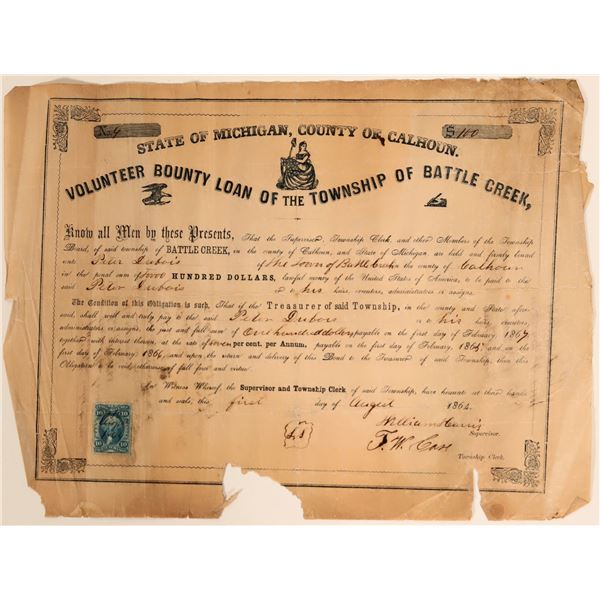 No. 9
$100
STATE OF MICHIGAN, COUNTY OF CALHOUN.
VOLUNTEER BOUNTY LOAN OF THE TOWNSHIP OF BATTLE CREEK,
Know all Men by these Presents, That the Supervisor, Township Clerk, and other Members of the Township
Board, of said township of BATTLE CREEK, in the county of Calhoun, and State of Michigan are held and firmly bound
unto Peter Dubois of the Town of Battle Creek in the county of Calhoun
in the penal sum of two HUNDRED DOLLARS, lawful money of the United States of America, to be paid to the
said Peter Dubois his heirs, executors, administrators or assigns.
The Condition of this Obligation is such, That if the Treasurer of said Township, in the county and State afore-
said, shall well and truly pay to the said Peter Dubois his heirs, executors,
administrators or assigns, the just and full sum of One hundred dollars payable on the first day of February 1867,
together with interest thereon, at the rate of seven per cent. per Annum, payable on the first day of February 1865, and on the
first day of February, 1866, and upon the return and delivery of this Bond to the Treasurer of said Township, then this
Obligation to be void otherwise of full force and virtue.
In Witness Whereof, the Supervisor and Township Clerk of said Township, have hereunto set their hands
and seals, this first day of August 1864.
L S
William Harris
Supervisor.
T. W. Case
Township Clerk.
10 10
10 10